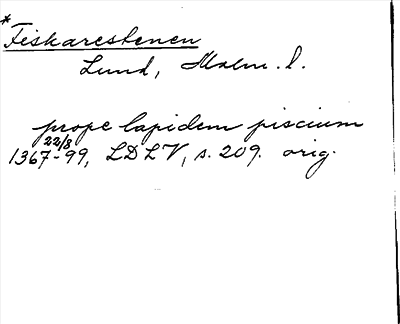 *
Fiskarestenen
Lund, Malm. l.
prope lapidem piscium
22/8
1367-99, LDLV, s. 209. orig.